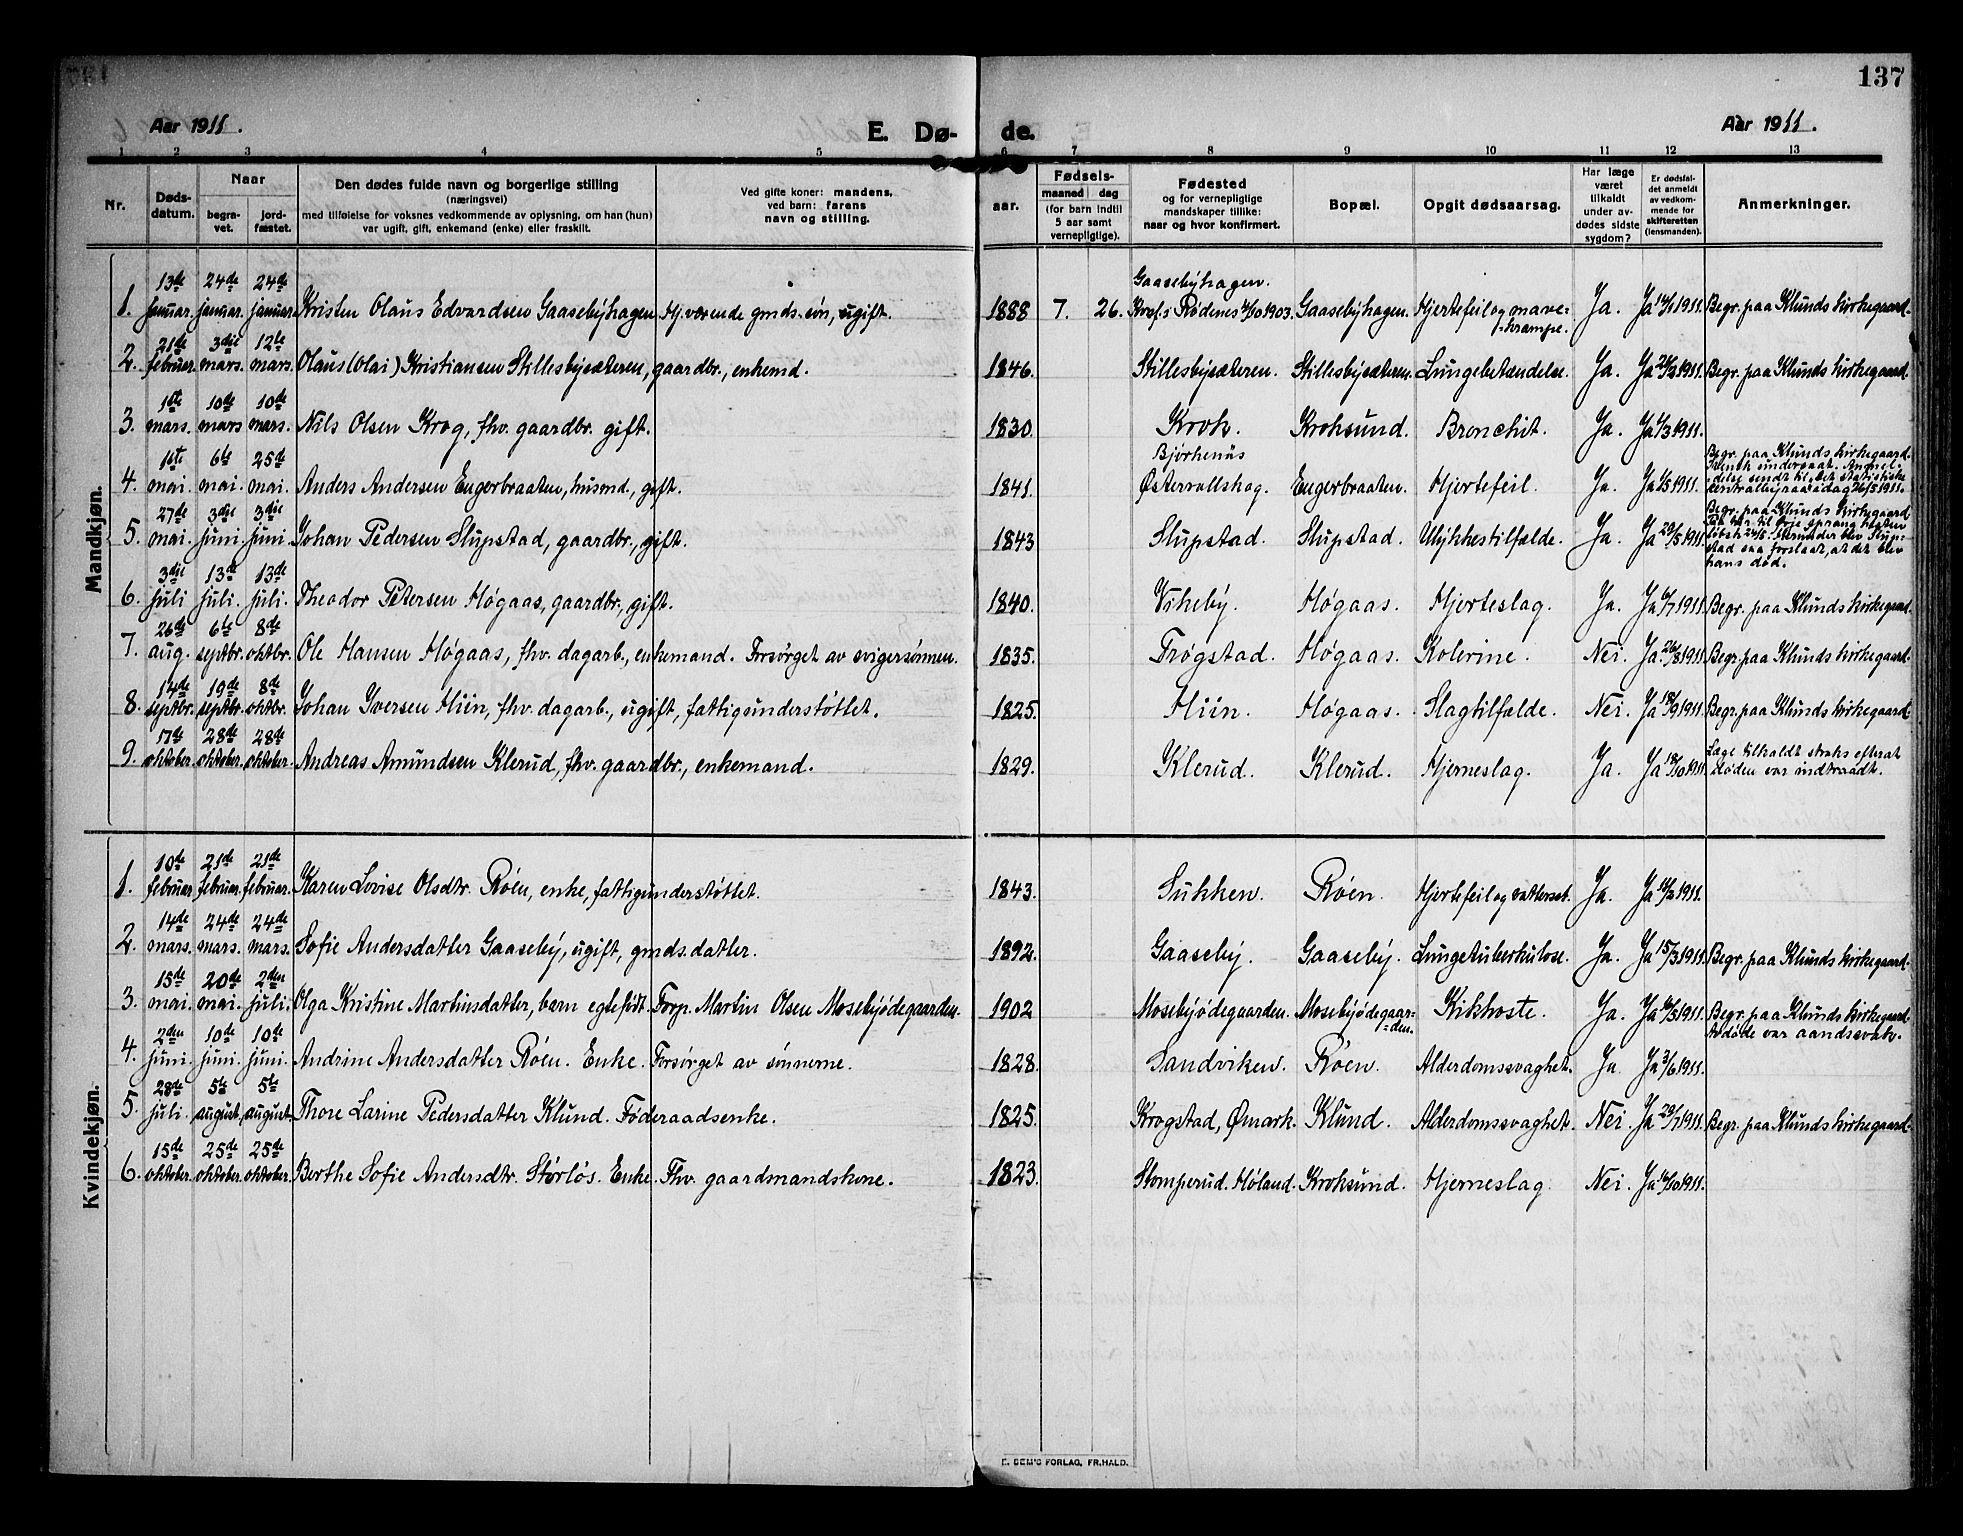 137
Aar 1911.
E. Dø-
de.
Aar 1911.
1 2 3 4 5 6 7 8 9 10 11 12 13
Nr.
Døds-
datum.
Naar
begra-
vet.
jord-
fæstet.
Den dødes fulde navn og borgerlige stilling
(næringsvei)
med tilføielse for voksnes vedkommende av oplysning, om han (hun)
var ugift, gift, enkemand (enke) eller fraskilt.
Ved gifte koner: mandens,
ved barn: farens
navn og stilling.
aar.
Fødsels-
maaned dag
(for barn indtil
5 aar samt
vernepligtige).
Fødested
og for vernepligtige
mandskaper tillike:
naar og hvor konfirmert.
Bopæl.
Opgit dødsaarsag.
Har læge
været
tilkaldt
under av-
dødes sidste
sygdom?
Er dødsfal-
det anmeldt
av vedkom-
mende for
skifteretten
(lensmanden).
Anmerkninger.
Mandkjøn.
13de 24de 24de Gaasebyhagen.
1. januar. januar. januar. Kristen Olaus Edvardsen Gaasebyhagen Hj.værende gmds. søn, ugift. 1888 7. 26. Konf. i Rødenes 4/10 1903. Gaasebyhagen. Hjertefeil og mave- Ja. Ja 14/1 1911. Begr. paa Klunds kirkegaard.
-krampe.
21de 3die 12te
2. februar. mars. mars. Olaus (Olai) Kristiansen Stillesbysæteren, gaardbr., enkemd. 1846. Stillesbysæteren. Stillesbysæteren. Lungebetændelse. Ja. Ja 21/2 1911. Begr. paa Klunds kirkegaard.
1ste 10de 10de
3. mars. mars mars. Nils Olsen Krog, fhv. gaardbr. gift. 1830. Krok. Kroksund. Bronchit. Ja. Ja 1/3 1911.
16te 6te 25de Bjørkenäs
4. mai. mai. mai. Anders Andersen Engerbraaten, husmd., gift. 1841. Østervallskog. Engerbraaten. Hjertefeil. Ja. Ja 1/5 1911.
Begr. paa Klunds kirkegaard
Svensk undersaat. Anmel-
delse sendt til det statistiske
centralbyraa idag 26/5 1911.
27de 3die 3die
5. mai. juni. juni. Johan Pedersen Slupstad, gaardbr., gift. 1843 Slupstad. Slupstad. Ulykkestilfælde. Ja. Ja 29/5 1911.
Begr. paa Klunds kirkegaard
løbsk 24/5. Herunder blev Slup-
stad saa forslaat, at det blev
hans død.
3die 13de 13de
6. juli juli. juli. Theodor Petersen Høgaas, gaardbr., gift. 1840. Vikeby. Høgaas. Hjerteslag. Ja. Ja 6/7 1911. Begr. paa Klunds kirkegaard.
26de 6te 8de
7. aug. septbr. oktbr. Ole Hansen Høgaas, fhv. dagarb., enkemand. Forsørget av svigersønnen. 1835. Trøgstad. Høgaas. Kolerine. Nei. Ja. 26/8 1911 Begr. paa Klunds kirkegaard.
14de 19de 8de
8. septbr. septbr. oktbr. Johan Iversen Hiin, fhv. dagarb., ugift, fattigunderstøttet. 1825. Hiin. Høgaas. Slagtilfælde. Nei. Ja 18/9 1911. Begr. paa Klunds kirkegaard.
17de 28de 28de
9. oktober. oktober. oktober. Andreas Amundsen Klerud, fhv. gaardbr., enkemand. 1829. Klerud. Klerud. Hjerneslag. Ja. Ja 18/10 1911. Læge tilkaldt straks efterat
døden var indtraadt.
Kvindekjøn.
10de 21de 21de
1. februar februar. februar. Karen Lovise Olsdtr. Røen, enke, fattigunderstøttet. 1843. Sukken. Røen. Hjertefeil og vattersot. Ja. Ja 11/2 1911.
14de 24de 24de
2. mars. mars. mars. Sofie Andersdatter Gaaseby, ugift, gmds.datter. 1892. Gaaseby. Gaaseby. Lungetuberkulose. Ja. Ja 15/3 1911. Begr. paa Klunds kirkegaard.
15de 20de 2den
3. mai. mai. juli. Olga Kristine Martinsdatter, barn egtefødt. Forp. Martin Olsen Mosebyødegaarden. 1902 Mosebyødegaarden. Mosebyødegaar- Kikhoste. Ja. Ja 16/5 1911. Begr. paa Klunds kirkegaard
-den. Avdøde var aandssvak.
2den 10de 10de
4. juni. juni. juni. Andrine Andersdatter Røen. Enke. Forsørget av sønnerne. 1828. Sandviken. Røen. Alderdomssvaghet. Ja. Ja 3/6 1911.
28de 5te 5te
5. juli. august. august. Thore Larine Pedersdatter Klund. Føderaadsenke. 1825. Krogstad, Ømark. Klund. Alderdomssvaghet. Nei. Ja 29/7 1911. Begr. paa Klunds kirkegaard.
15de 25de 25de
6. oktober. oktober. oktober. Berthe Sofie Andersdtr. Størløs. Enke. Fhv. gaardmandskone. 1823. Stomperud. Høland. Kroksund. Hjerneslag. Nei. Ja 16/10 1911.
E. SEM'S FORLAG, FR.HALD.